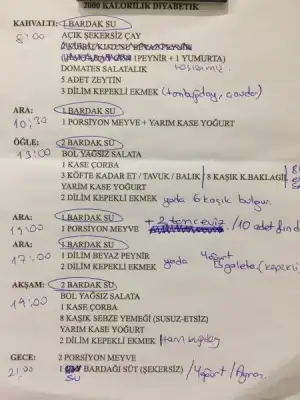 2000 KALORİLİK DİYABETİK
KAHVALTI: 1 BARDAK SU
8:00 AÇIK ŞEKERSİZ ÇAY
(1PEYNİR + 1 YUMURTA)
DOMATES SALATALIK
5 ADET ZEYTİN
3 DİLİM KEPEKLİ EKMEK (tambuğday, çavdar)
ARA: 1 BARDAK SU
10:30 1 PORSİYON MEYVE + YARIM KASE YOĞURT
ÖĞLE: 2 BARDAK SU
13:00 BOL YAĞSIZ SALATA
1 KASE ÇORBA
3 KÖFTE KADAR ET / TAVUK / BALIK / 8 KAŞIK K.BAKLAGİL
YARIM KASE YOĞURT
2 DİLİM KEPEKLİ EKMEK yada 6 kaşık bulgur.
ARA: 1 BARDAK SU
1 PORSİYON MEYVE + 2 tane ceviz / 10 adet fınd
ARA: 1 BARDAK SU
17:00 1 DİLİM BEYAZ PEYNİR
2 DİLİM KEPEKLİ EKMEK yada Yoğurt galeta (kepekli
AKŞAM: 2 BARDAK SU
19:00 BOL YAĞSIZ SALATA
1 KASE ÇORBA
8 KAŞIK SEBZE YEMEĞİ (SUSUZ-ETSİZ)
YARIM KASE YOĞURT
2 DİLİM KEPEKLİ EKMEK /tam buğday
GECE: 2 PORSİYON MEYVE
21:00 1 SU BARDAĞI SÜT (ŞEKERSİZ) / Yoğurt / Ayran.